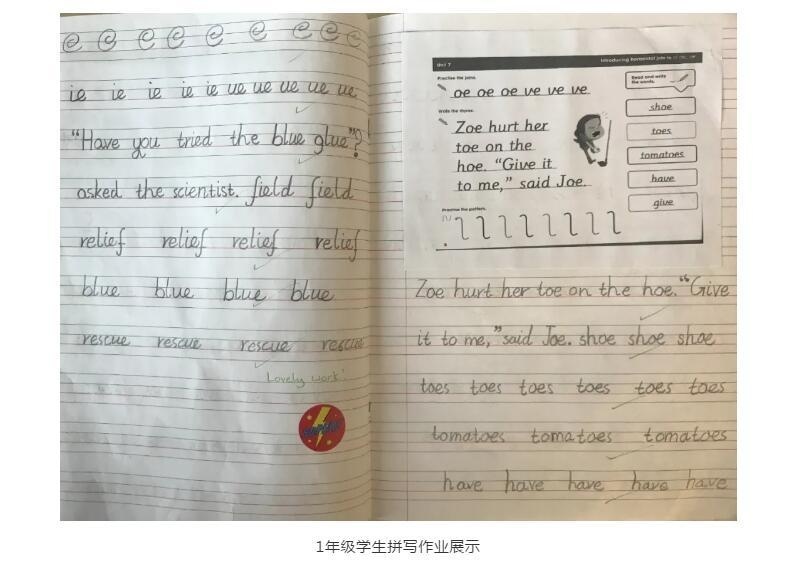 e e e e e e e e e
ie ie ie ie ie ue ue ue ue ue
“Have you tried the blue glue”?
asked the scientist. field field
relief relief relief relief
blue blue blue blue
rescue rescue rescue rescue
Lovely work!
Unit 7
Introducing horizontal join to
Practise the joins.
oe oe oe ve ve ve
Write the rhyme.
Zoe hurt her
toe on the
hoe. “Give it
to me,” said Joe.
Practise the pattern.
Read and write
the words.
shoe
toes
tomatoes
have
give
Zoe hurt her toe on the hoe. “Give
it to me,” said Joe. shoe shoe shoe
toes toes toes toes toes toes
tomatoes tomatoes tomatoes
have have have have have
1年级学生拼写作业展示